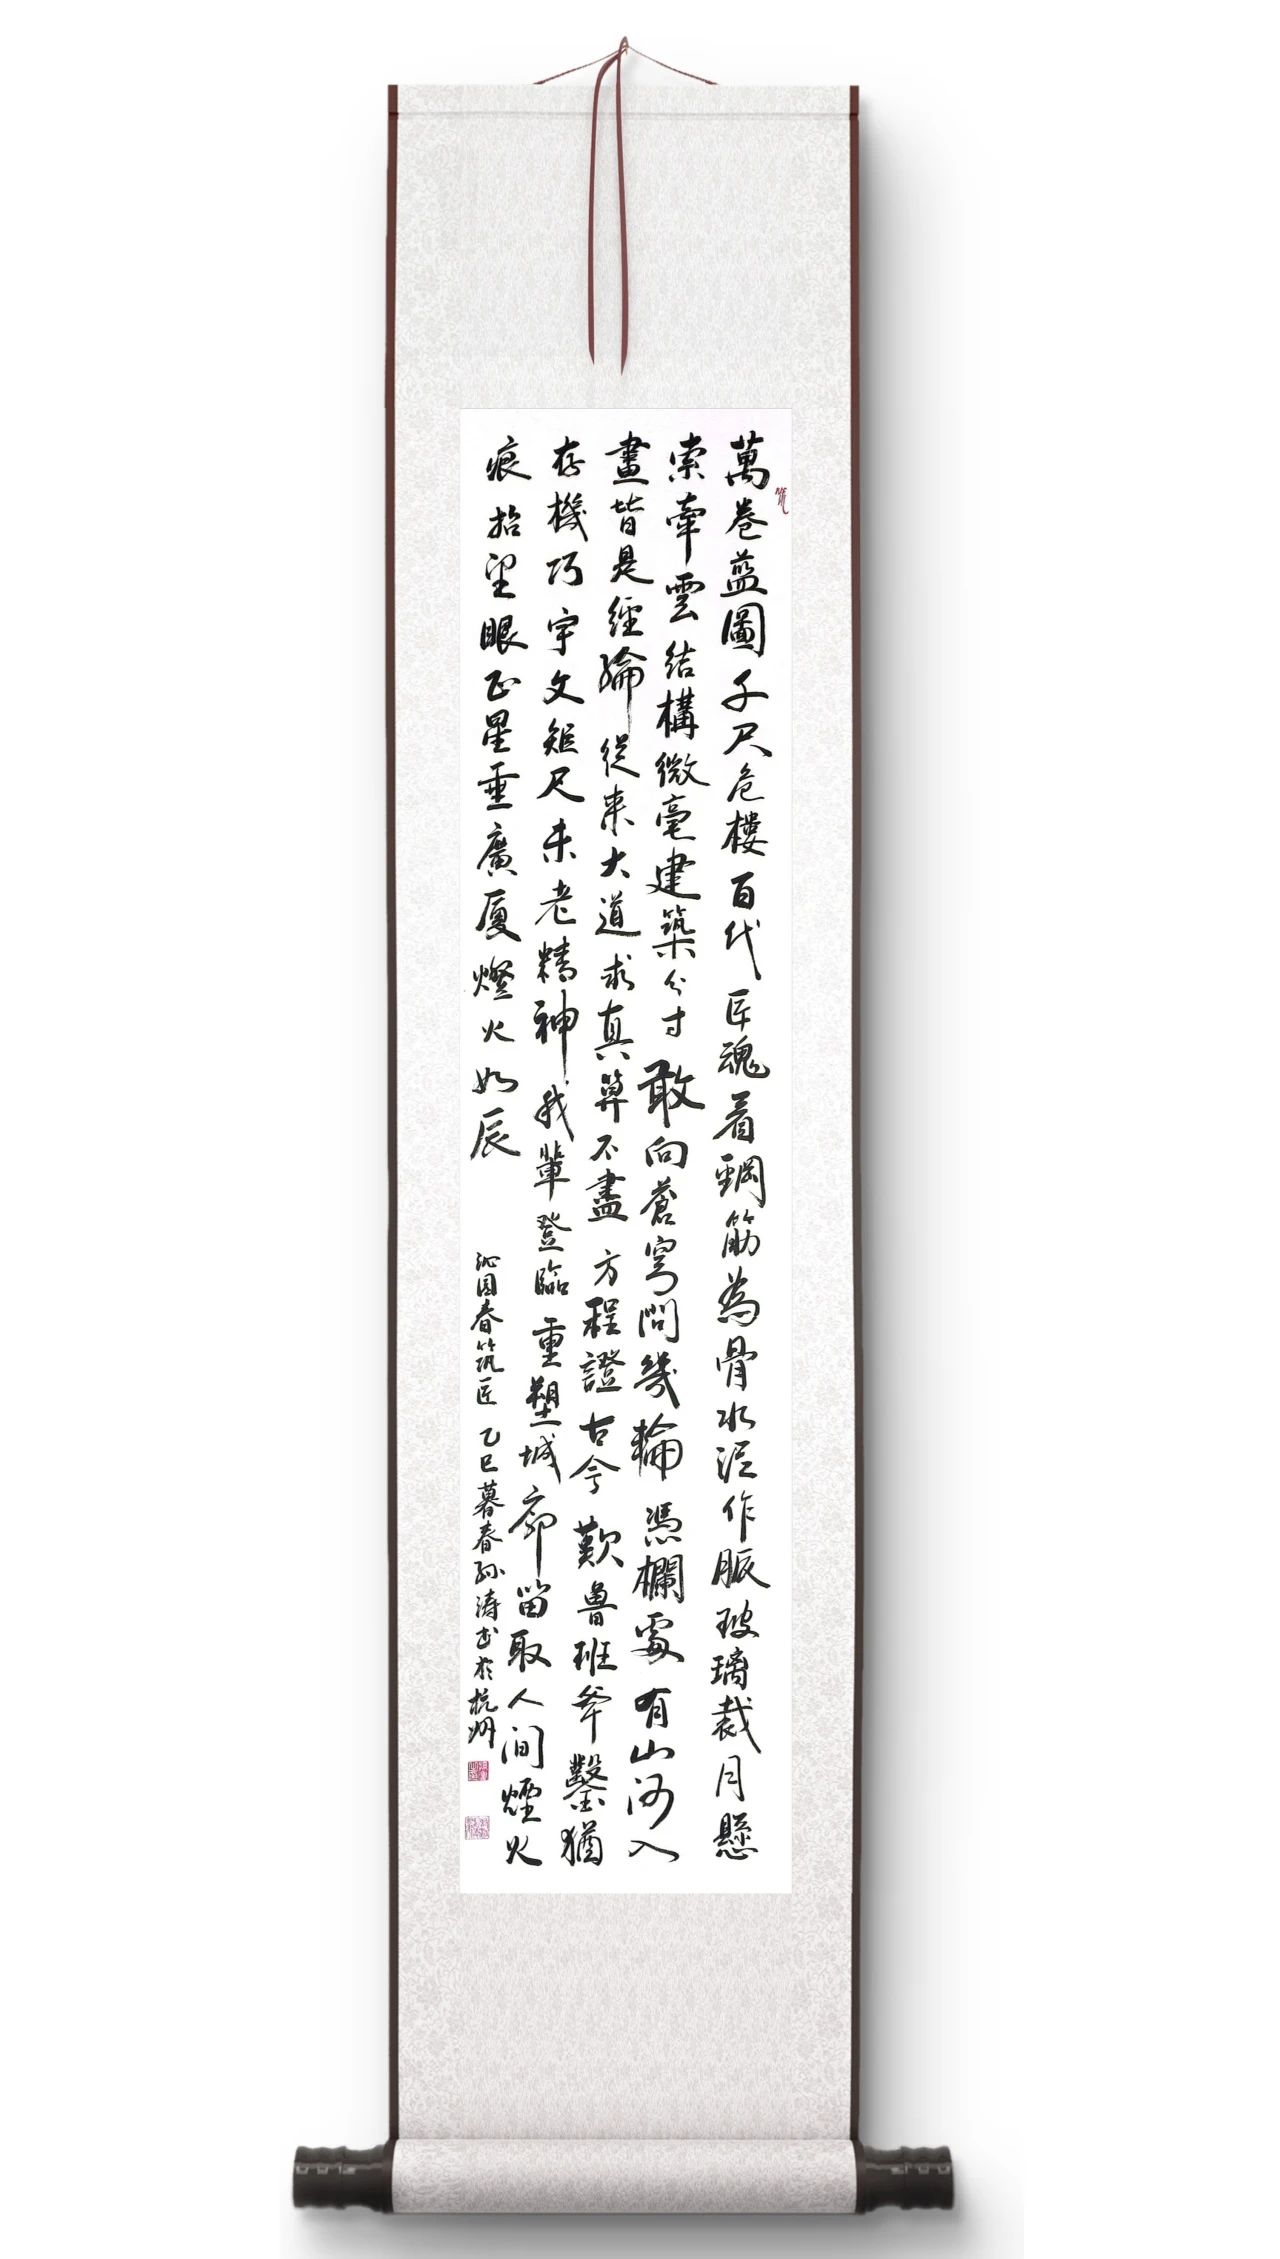 萬卷藍圖千尺危樓百代匠魂看鋼筋為骨水泥作脈玻璃裁月懸
索牽雲結構微毫建築分寸敢向蒼穹問幾輪憑欄處有山河入
畫皆是經綸從來大道求真算不盡方程證古今歎魯班斧鑿猶
存機巧宇文矩尺未老精神我輩登臨重塑城廓留取人间煙火
痕抬望眼正星垂廣厦燈火如辰
沁园春筑匠乙巳暮春孙涛书於杭州